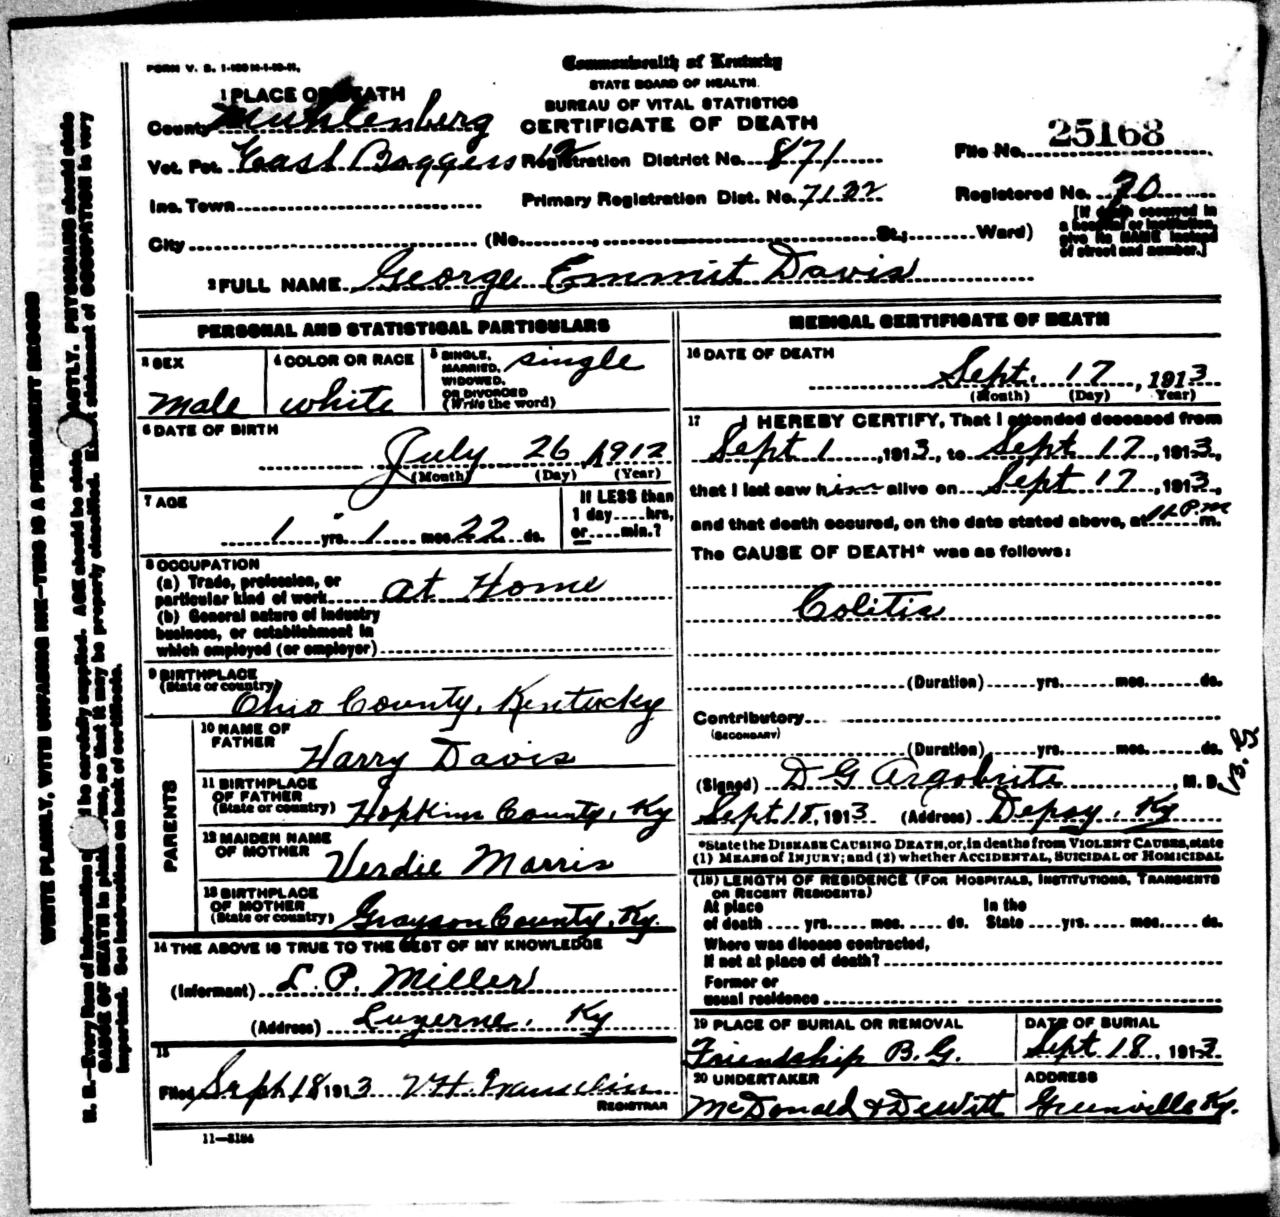 FORM V. S. 1-150M-1-10-11.
Commonwealth of Kentucky
STATE BOARD OF HEALTH.
BUREAU OF VITAL STATISTICS
CERTIFICATE OF DEATH
1 PLACE OF DEATH
County Muhlenberg
Vot. Pct. East Baggess 12 Registration District No. 871
File No. 25168
Ino. Town Primary Registration Dist. No. 7122
Registered No. 70
City (No. , St.; Ward)
[If death occurred in a hospital or institution, give its NAME instead of street and number.]
2 FULL NAME George Emmit Davis
PERSONAL AND STATISTICAL PARTICULARS
3 SEX
Male
4 COLOR OR RACE
white
5 SINGLE, MARRIED, WIDOWED, OR DIVORCED (Write the word)
single
6 DATE OF BIRTH
July 26, 1912
(Month) (Day) (Year)
7 AGE
1 yrs. 1 mos. 22 ds.
If LESS than 1 day hrs, or min.?
8 OCCUPATION
(a) Trade, profession, or
particular kind of work at Home
(b) General nature of industry
business, or establishment in
which employed (or employer)
9 BIRTHPLACE
(State or country) Ohio County, Kentucky
PARENTS
10 NAME OF FATHER
Harry Davis
11 BIRTHPLACE OF FATHER
(State or country) Hopkins County, Ky
12 MAIDEN NAME OF MOTHER
Verdie Morris
13 BIRTHPLACE OF MOTHER
(State or country) Grayson County, Ky.
14 THE ABOVE IS TRUE TO THE BEST OF MY KNOWLEDGE
(Informant) L. P. Miller
(Address) Luzerne, Ky
15
Filed Sept 18 1913 V H
REGISTRAR
11—3184
MEDICAL CERTIFICATE OF DEATH
16 DATE OF DEATH
Sept. 17, 1913
(Month) (Day) Year)
17 I HEREBY CERTIFY, That I attended deceased from
Sept 1, 1913, to Sept 17, 1913,
that I last saw him alive on Sept 17, 1913,
and that death occured, on the date stated above, at P.M m.
The CAUSE OF DEATH* was as follows:
Colitis
(Duration) yrs. mos. ds.
Contributory
(SECONDARY)
(Duration) yrs. mos. ds.
(Signed) D G Argabrite M. D.
Sept 18, 1913 (Address) Depoy, Ky
*State the DISEASE CAUSING DEATH, or, in deaths from VIOLENT CAUSES, state
(1) MEANS of INJURY; and (2) whether ACCIDENTAL, SUICIDAL or HOMICIDAL
(18) LENGTH OF RESIDENCE (FOR HOSPITALS, INSTITUTIONS, TRANSIENTS
OR RECENT RESIDENTS)
At place In the
of death yrs. mos. ds. State yrs. mos. ds.
Where was disease contracted,
If not at place of death?
Former or
usual residence
19 PLACE OF BURIAL OR REMOVAL
Friendship B. G.
DATE OF BURIAL
Sept. 18, 1913
20 UNDERTAKER
McDonald & DeWitt
ADDRESS
Greenville Ky.
WRITE PLAINLY, WITH UNFADING INK—THIS IS A PERMANENT RECORD
N. B.—Every item of information be carefully supplied. AGE should be stated EXACTLY. PHYSICIANS should state
CAUSE OF DEATH in plain terms, so that it may be properly classified. Exact statement of OCCUPATION is very
important. See instructions on back of certificate.